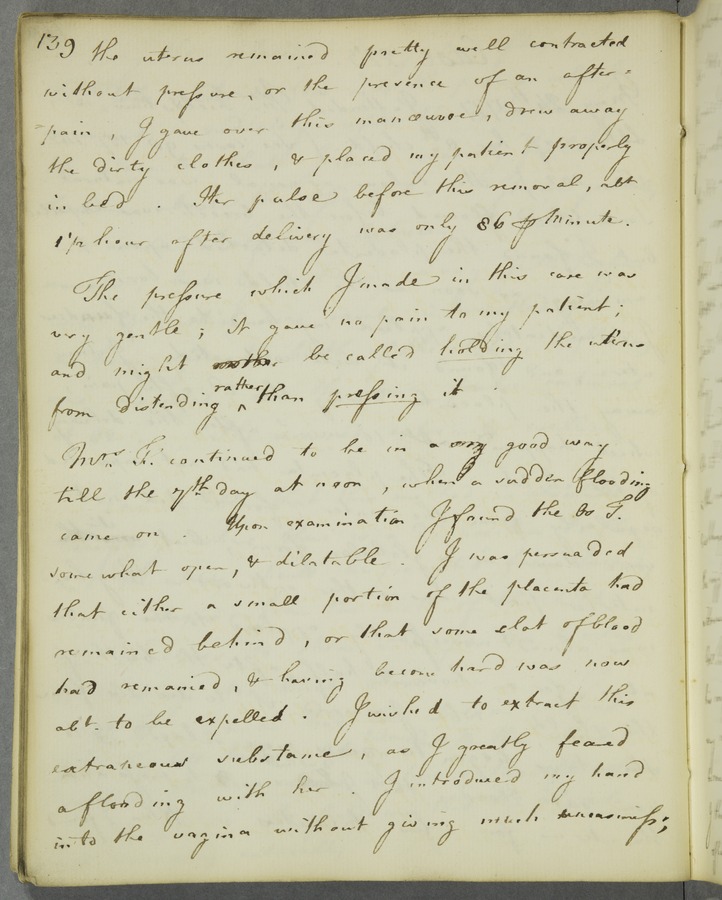 139 the uterus remained pretty well contracted
without pressure, or the presence of an after=
=pain, I gave over this manœuvre, drew away
the dirty clothes, & placed my patient properly
in bed. Her pulse before this removal, abt
1/2 hour after delivery was only 86 p Minute.
The pressure which I made in this case was
very gentle; it gave no pain to my patient;
and might be called holding the uterus
from distending rather than pressing it.
Mrs. F. continued to be in a very good way
till the 7th day at noon, when a sudden flooding
came on. Upon examination I found the Os T.
somewhat open, & dilatable. I was persuaded
that either a small portion of the placenta had
remained behind, or that some clot of blood
had remained, & having become hard was now
abt. to be expelled. I wished to extract this
extraneous substance, as I greatly feared
a flooding with her. I introduced my hand
into the vagina without giving much uneasiness;